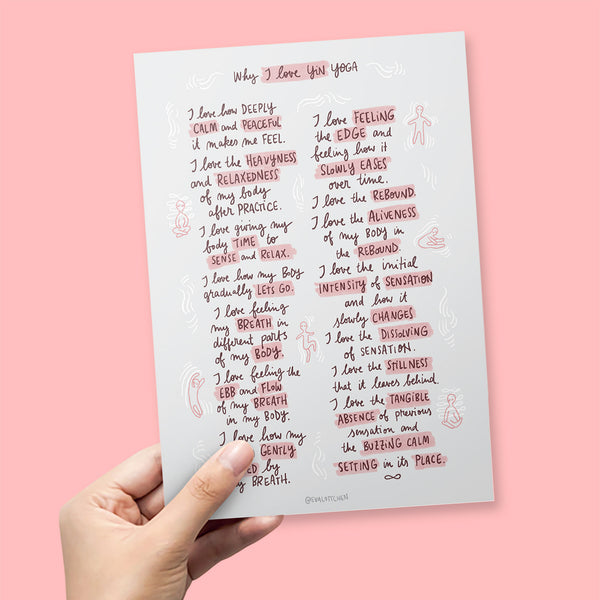 Why I love YiN YOGA
I love how DEEPLY
CALM and PEACEFUL
it makes me FEEL.
I love the HEAVYNESS
and RELAXEDNESS
of my body
after PRACTICE.
I love giving my
body TIME to
SENSE and RELAX.
I love how my BODY
gradually LETS GO.
I love feeling
my BREATH in
different parts
of my BODY.
I love feeling the
EBB and FLOW
of my BREATH
in my BODY.
I love how my
GENTLY
by
BREATH.
I love FEELING
the EDGE and
feeling how it
SLOWLY EASES
over time.
I love the REBOUND.
I love the ALIVENESS
of my BODY in
the REBOUND.
I love the initial
INTENSITY of SENSATION
and how it
slowly CHANGES
I love the DISSOLVING
of SENSATION.
I love the STILLNESS
that it leaves behind.
I love the TANGIBLE
ABSENCE of previous
sensation and
the BUZZING CALM
SETTING in its PLACE.
@EVALOTTCHEN